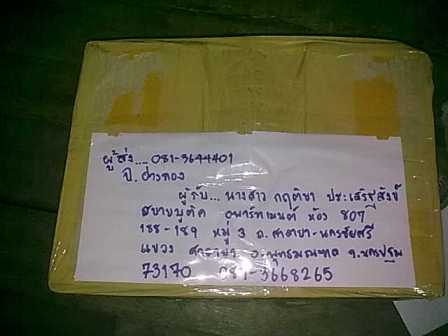 ผู้ส่ง.... 081-3644401
จ. อ่างทอง
ผู้รับ... นางสาว กฤติยา
สยามบูติค อพาร์ทเมนท์ ห้อง 807
188-189 หมู่ 3 ถ. ศาลายา-นครชัยศรี
แขวง ศาลายา อ. พุทธมณฑล จ. นครปฐม
73170 081-3668265